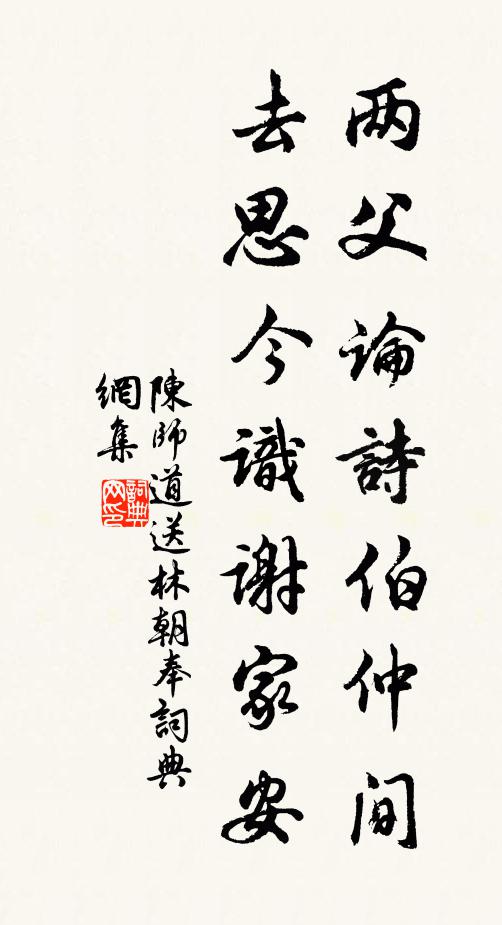 两父論詩伯仲间
去思今識謝家安
陳師道送林朝奉詞典
網集
詞典網印